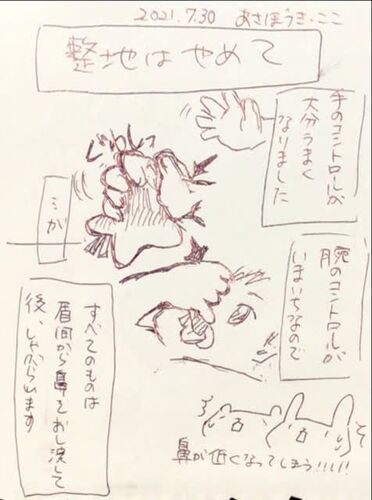 2021.7.30 あさぼうき・ここ
整地はやめて
手のコントロールが
大分うまく
なりました
腕のコントロールが
いまいちなので
すべてのものは
眉間から鼻をおし決して
後、しゃぶられます
鼻が低くなってしまう!!!!!